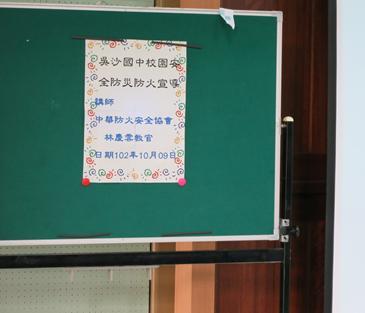 吳沙國中校園安
全防災防火宣導
講師
中華防火安全協會
林慶雲教官
日期102年10月09日